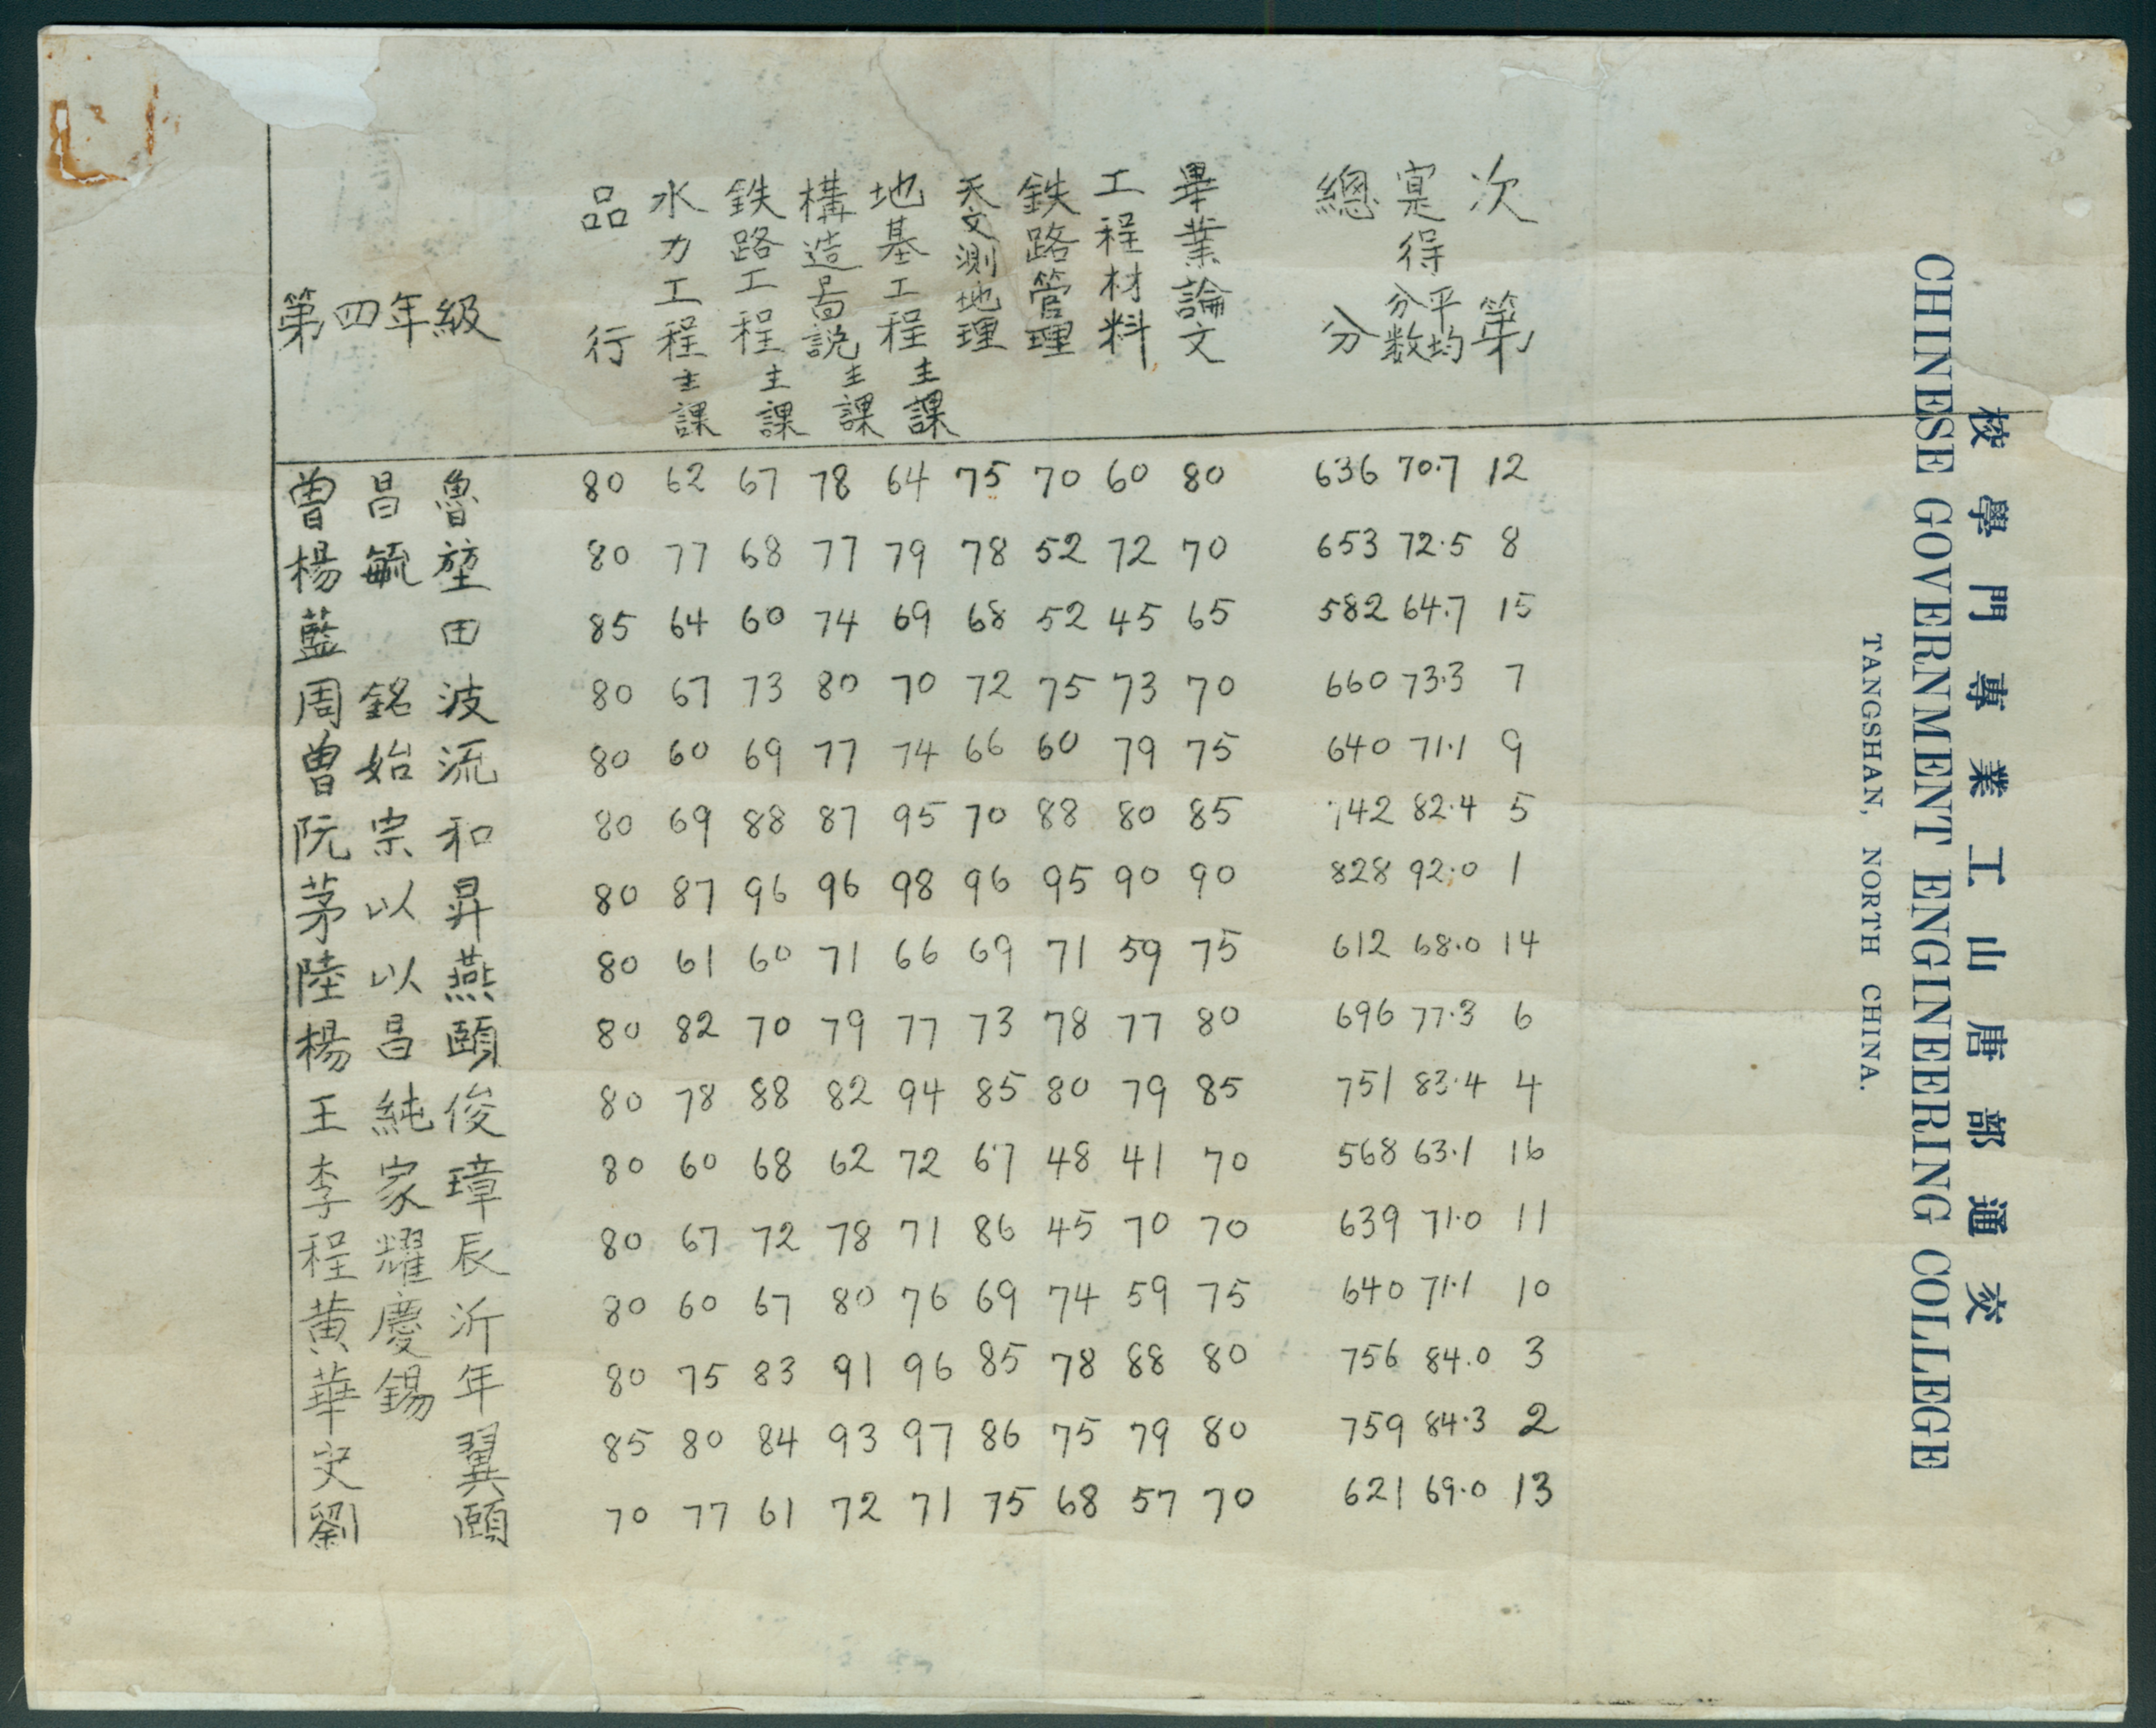 第四年級 品行 水力工程主課 鉄路工程主課 構造啚說主課 地基工程主課 天文測地理 鉄路管理 工程材料 畢業論文 總分 寔得平均分数 次第
曾昌魯 80 62 67 78 64 75 70 60 80 636 70.7 12
楊毓堃 80 77 68 77 79 78 52 72 70 653 72.5 8
藍田 85 64 60 74 69 68 52 45 65 582 64.7 15
周銘波 80 67 73 80 70 72 75 73 70 660 73.3 7
曾始流 80 60 69 77 74 66 60 79 75 640 71.1 9
阮宗和 80 69 88 87 95 70 88 80 85 742 82.4 5
茅以昇 80 87 96 96 98 96 95 90 90 828 92.0 1
陸以燕 80 61 60 71 66 69 71 59 75 612 68.0 14
楊昌頤 80 82 70 79 77 73 78 77 80 696 77.3 6
王純俊 80 78 88 82 94 85 80 79 85 751 83.4 4
李家璋 80 60 68 62 72 67 48 41 70 568 63.1 16
程耀辰 80 67 72 78 71 86 45 70 70 639 71.0 11
黄慶沂 80 60 67 80 76 69 74 59 75 640 71.1 10
華錫年 80 75 83 91 96 85 78 88 80 756 84.0 3
翼 85 80 84 93 97 86 75 79 80 759 84.3 2
劉頤 70 77 61 72 71 75 68 57 70 621 69.0 13
交通部唐山工業專門學校
CHINESE GOVERNMENT ENGINEERING COLLEGE
TANGSHAN, NORTH CHINA.